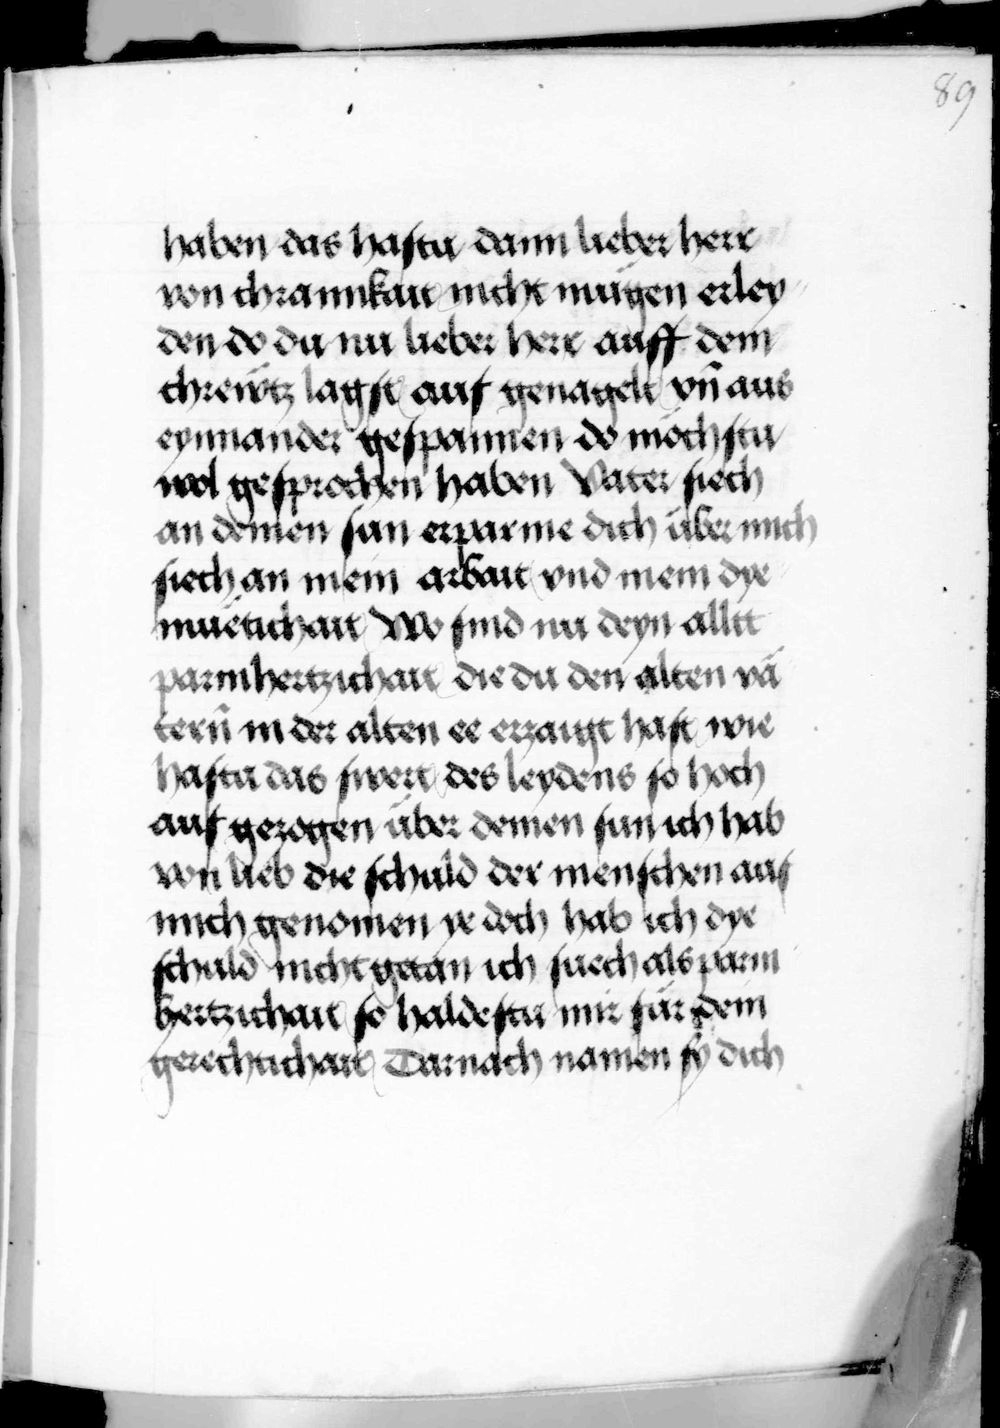 89
haben das hastu dann lieber herr
von chrannkait nicht mügen erley
den do du nu lieber herr auff dem
chrewtz lagst auf genagelt vn̄ aus
eynnander gespannen do möchstu
wol gesprochen haben Vater siech
an deinen sun erparme dich über mich
siech an mein arbait vnd mein dye
müetichait Wo sind nu deyn alltt
parmhertzichait die du den alten vä
tern̄ in der alten ee erzaigt hast wie
hastu das swert des leydens so hoch
auf gezogen über deinen sun ich hab
von lieb die schuld der menschen auf
mich genomen ye doch hab ich dye
schuld nicht getan ich suech als parm
hertzichait so haldestu mir für dein
gerechtichait Darnach namen sy dich